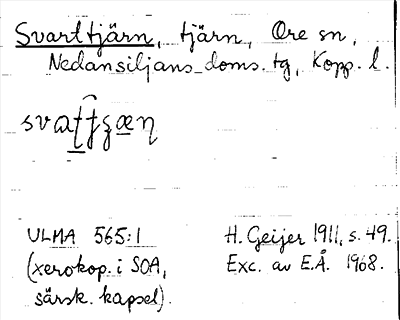 Svarttjärn, tjärn, Ore sn,
Nedansiljans doms. tg, Kopp. l.
ULMA 565:1
(xerokop. i SOA,
särsk. kapsel).
H. Geijer 1911, s. 49.
Exc. av E.Å. 1968.